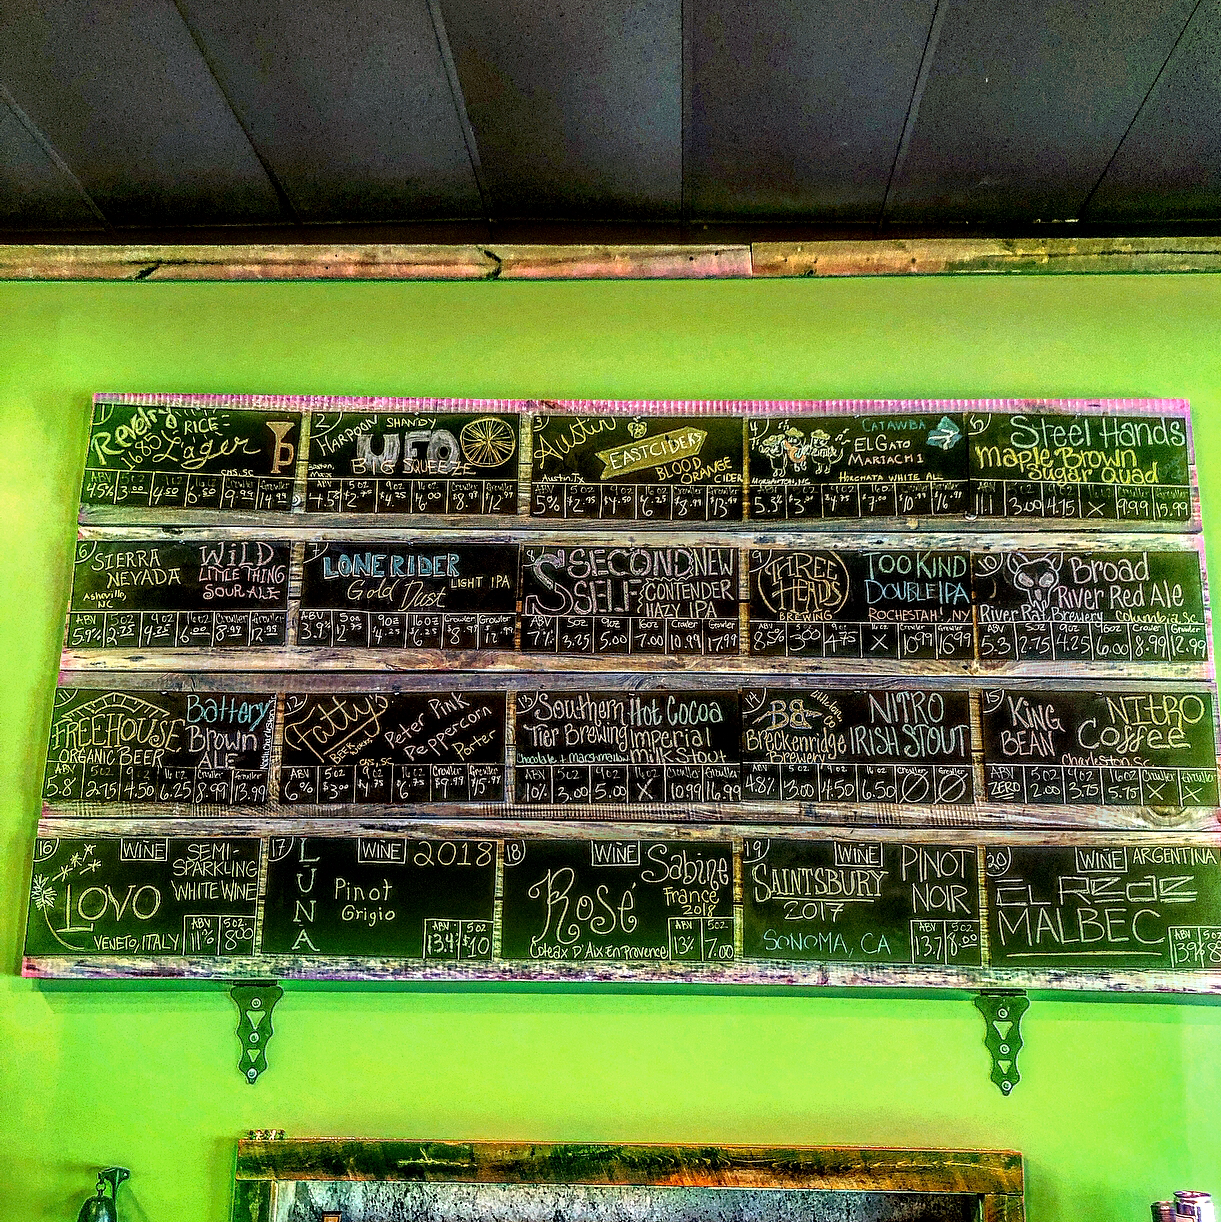 1)
Revelry
RICE-
1685 Lager
CHS, SC
ABV 5oz
4.5% 3.00 4.50 6.50 9.99 14.99
2)
HARPOON SHANDY
UFO
BIG SQUEEZE
Boston, Mass
ABV 5oz 9oz 16oz Crowler Growler
4.5% $2.75 $4.25 $6.00 $8.99 $12.99
3)
Austin
EASTCIDERS
BLOOD
ORANGE
CIDER
Austin, TX
ABV 5oz 9oz 16oz Crowler Growler
5% $2.75 $4.50 $6.25 $8.99 $13.99
4)
CATAWBA
EL GATO
MARIACHI
HORCHATA WHITE ALE
5.3%
5)
Steel Hands
Maple Brown
Sugar Quad
11.1 3.00 4.75 X 9.99 15.99
6)
SIERRA
NEVADA
WILD
LITTLE THING
SOUR ALE
Asheville,
NC
ABV 5oz 9oz 16oz Crowler Growler
5.9% 2.75 4.25 6.00 8.99 12.99
7)
LONERIDER
Gold Dust
LIGHT IPA
ABV 5oz 9oz 16oz Crowler Growler
3.9% $2.75 $4.25 $6.25 $8.99 $12.99
8)
SECOND NEW
SELF CONTENDER
HAZY IPA
ABV 5oz 9oz 16oz Crowler Growler
7.1% 3.25 5.00 7.00 10.99 17.99
9)
THREE
HEADS
BREWING
TOO KIND
DOUBLE IPA
ROCHESTAH! NY
ABV 5oz 9oz 16oz Crowler Growler
8.5% 3.00 4.75 X 10.99 16.99
10)
Broad
River Red Ale
River Rat Brewery Columbia, SC
ABV 5oz 9oz 16oz Crowler Growler
5.3 2.75 4.25 6.00 8.99 12.99
11)
FREEHOUSE
ORGANIC BEER
Battery
Brown
ALE
ABV 5oz 9oz 16oz Crowler Growler
5.8 2.75 4.50 6.25 8.99 13.99
12)
Fatty's
BEER WORKS
CHS, SC
Peter Pink
Peppercorn
Porter
ABV 5oz 9oz 16oz Crowler Growler
6% $3.00 $4.75 $6.75 $9.99 $15.99
13)
Southern
Tier Brewing
Hot Cocoa
Imperial
Milk Stout
Chocolate + marshmallow
ABV 5oz 9oz 16oz Crowler Growler
10% 3.00 5.00 X 10.99 16.99
14)
Breckenridge
Brewery
NITRO
IRISH STOUT
ABV 5oz 9oz 16oz Crowler Growler
4.8% 3.00 4.50 6.50 Ø Ø
15)
KING
BEAN
NITRO
Coffee
Charleston, SC
ABV 5oz 9oz 16oz Crowler Growler
ZERO 2.00 3.75 5.75 X X
16)
WINE
SEMI-
SPARKLING
WHITE WINE
LOVO
VENETO, ITALY
ABV 5oz
11% 8.00
17)
LUNA
WINE 2018
Pinot
Grigio
ABV 5oz
13.4% $10
18)
WINE
Sabine
Rosé
France
2018
Coteax D'Aix En Provence
ABV 5oz
13% 7.00
19)
WINE
SAINTSBURY
2017
PINOT
NOIR
SONOMA, CA
ABV 5oz
13.7%
20)
WINE ARGENTINA
EL REDE
MALBEC
ABV 5oz
13.9%